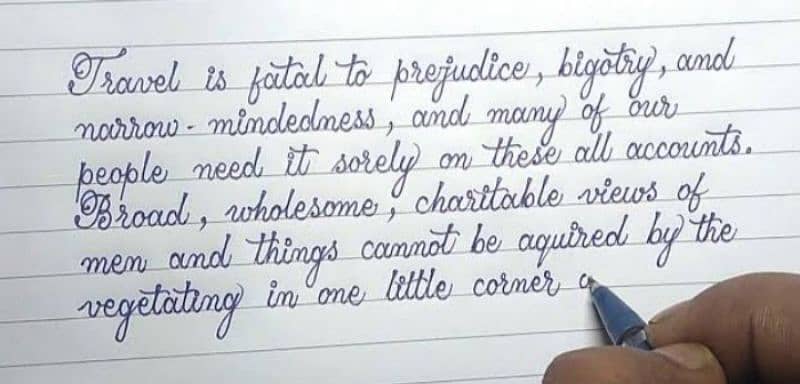 Travel is fatal to prejudice, bigotry, and
narrow - mindedness, and many of our
people need it sorely on these all accounts.
Broad, wholesome, charitable views of
men and things cannot be aquired by the
vegetating in one little corner